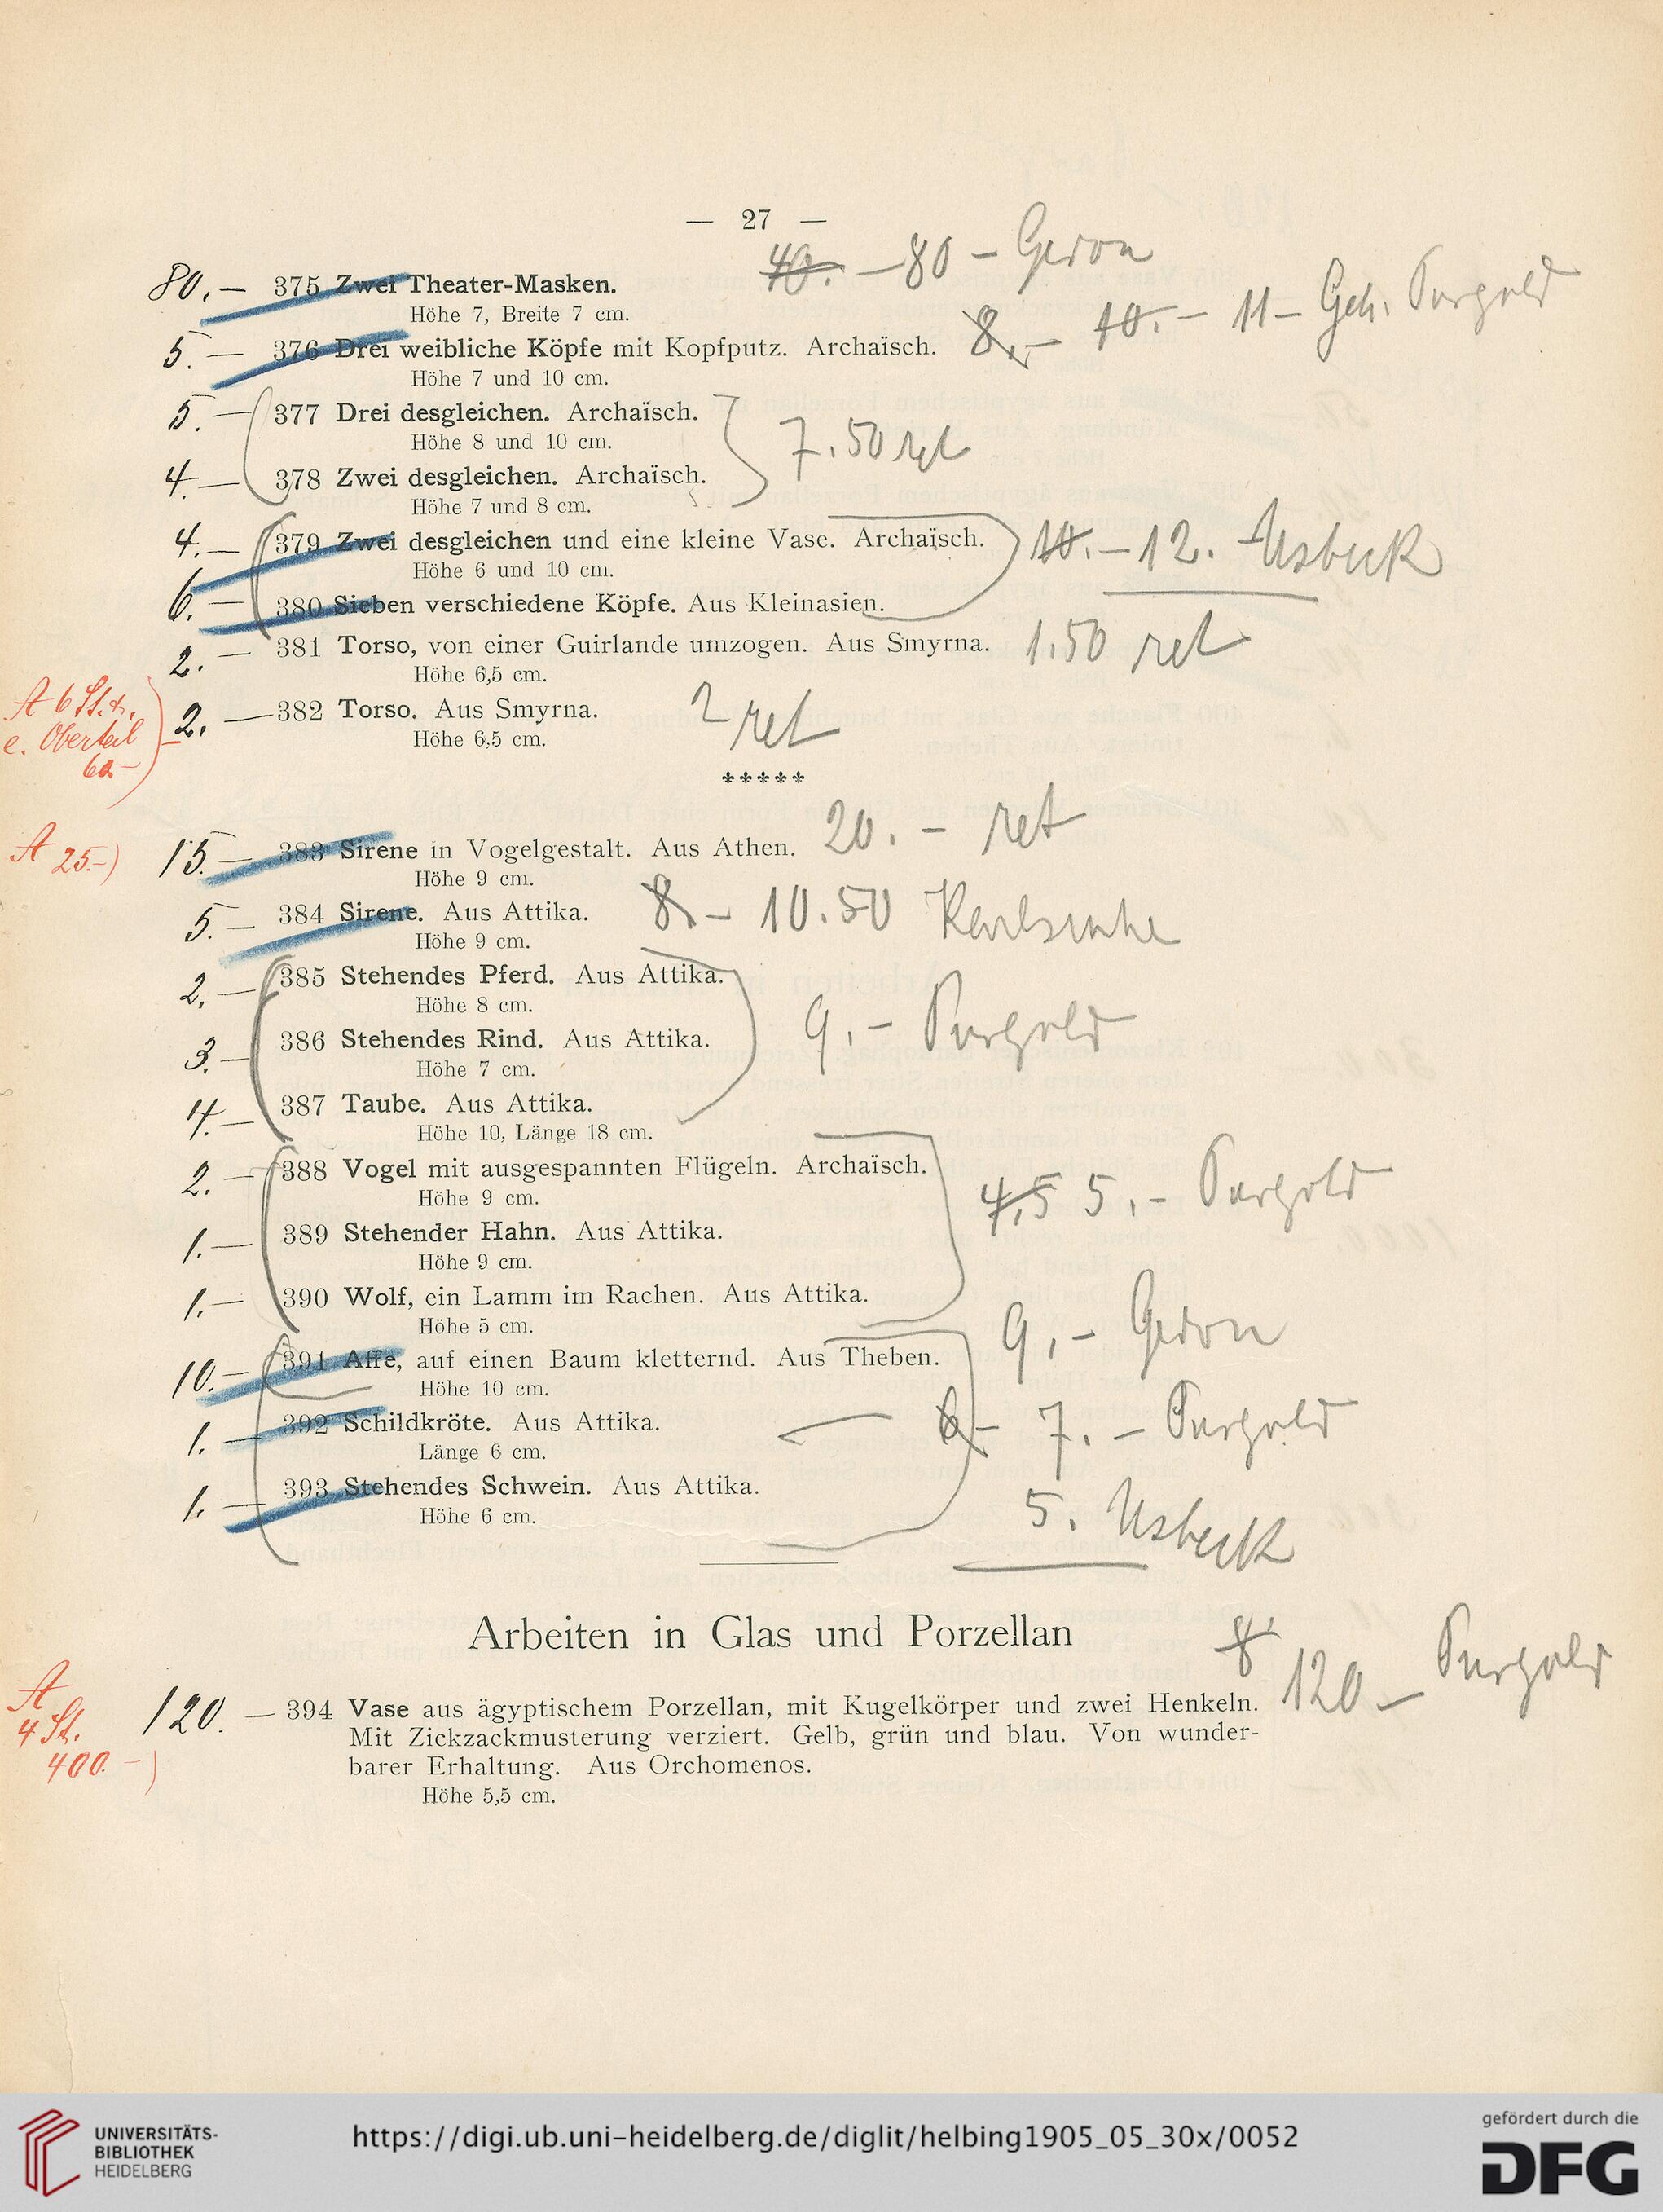 — 27 —
40.— 80 –
80.— 375 Zwei Theater-Masken.
Höhe 7, Breite 7 cm.
8.— 10.— 11— Geh. Purgold
5.— 376 Drei weibliche Köpfe mit Kopfputz. Archaïsch.
Höhe 7 und 10 cm.
5.— 377 Drei desgleichen. Archaïsch.
Höhe 8 und 10 cm.
7.50 ret
4.— 378 Zwei desgleichen. Archaïsch.
Höhe 7 und 8 cm.
4.— 379 Zwei desgleichen und eine kleine Vase. Archaïsch. 10.— 12. Usbeck
Höhe 6 und 10 cm.
6.— 380 Sieben verschiedene Köpfe. Aus Kleinasien.
2.— 381 Torso, von einer Guirlande umzogen. Aus Smyrna. 1.50 ret
Höhe 6,5 cm.
A 6 St. +.
e. Oberteil
60.—
2.— 382 Torso. Aus Smyrna. 2 ret
Höhe 6,5 cm.
*****
A 25.—) 15.— 383 Sirene in Vogelgestalt. Aus Athen. 20.— ret
Höhe 9 cm.
5.— 384 Sirene. Aus Attika. 8.— 10.50 Karlsruhe
Höhe 9 cm.
2.— 385 Stehendes Pferd. Aus Attika.
Höhe 8 cm.
3.— 386 Stehendes Rind. Aus Attika. 9.— Purgold
Höhe 7 cm.
4.— 387 Taube. Aus Attika.
Höhe 10, Länge 18 cm.
2.— 388 Vogel mit ausgespannten Flügeln. Archaïsch.
Höhe 9 cm.
4,5 5.— Purgold
1.— 389 Stehender Hahn. Aus Attika.
Höhe 9 cm.
1.— 390 Wolf, ein Lamm im Rachen. Aus Attika.
Höhe 5 cm.
9.—
10.— 391 Affe, auf einen Baum kletternd. Aus Theben.
Höhe 10 cm.
1.— 392 Schildkröte. Aus Attika. 6.— 7.— Purgold
Länge 6 cm.
1.— 393 Stehendes Schwein. Aus Attika.
Höhe 6 cm.
5. Usbeck
Arbeiten in Glas und Porzellan
A
4 St.
400.—)
8 120— Purgold
120.— 394 Vase aus ägyptischem Porzellan, mit Kugelkörper und zwei Henkeln.
Mit Zickzackmusterung verziert. Gelb, grün und blau. Von wunder-
barer Erhaltung. Aus Orchomenos.
Höhe 5,5 cm.
UNIVERSITÄTS-
BIBLIOTHEK
HEIDELBERG
https://digi.ub.uni-heidelberg.de/diglit/helbing1905_05_30x/0052
gefördert durch die
DFG